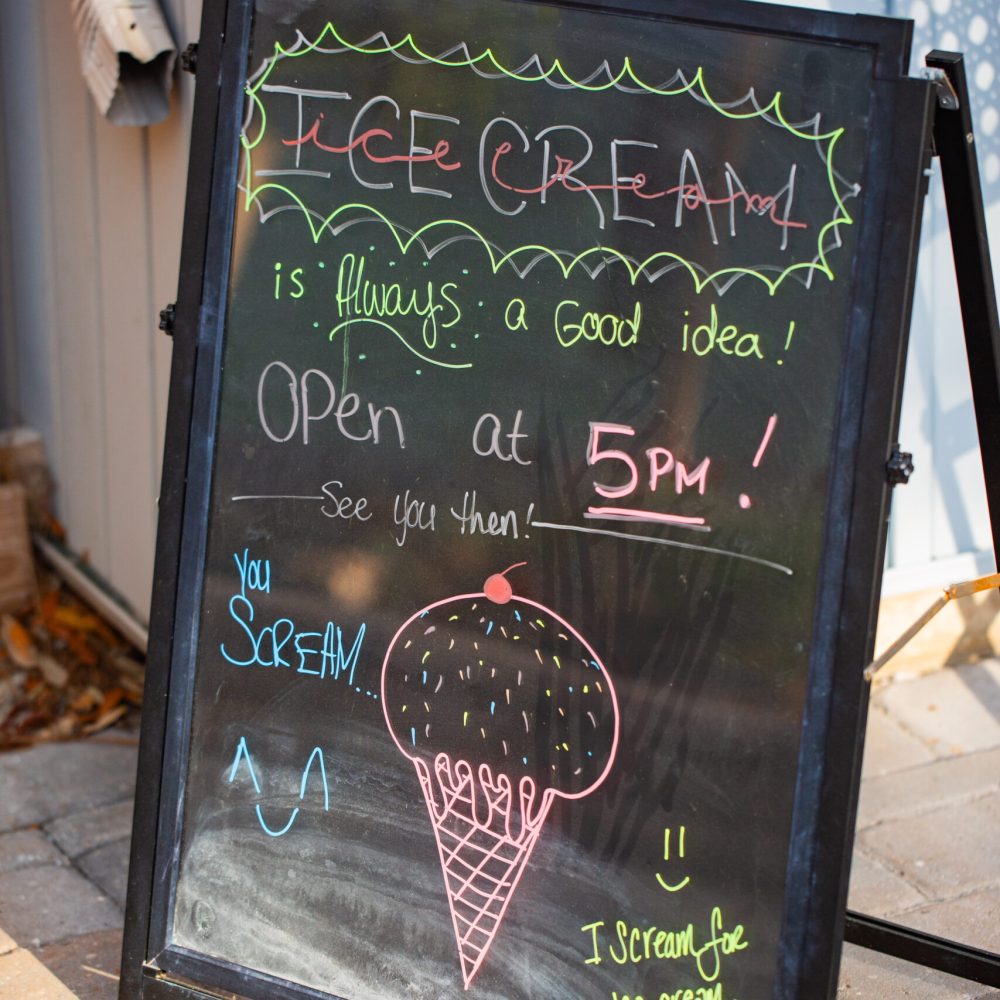 ICE CREAM
ice cream
is Always a Good idea!
Open at 5PM!
See you then!
You
SCREAM...
I Scream for
ice cream.